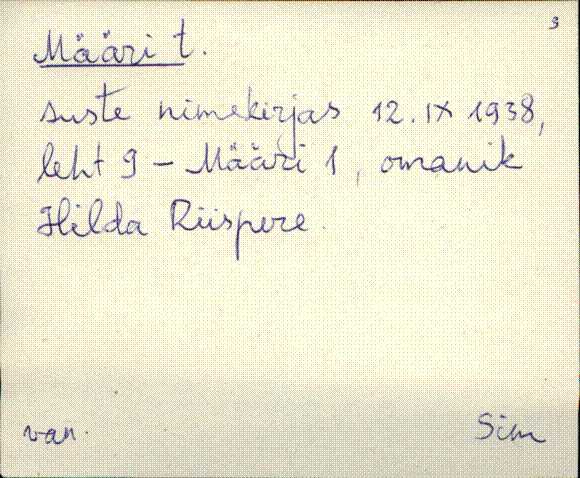 3
Määri t.
suste nimekirjas 12. IX 1938,
leht 9 – Määri 1, omanik
Hilda Riispere.
van. Sim